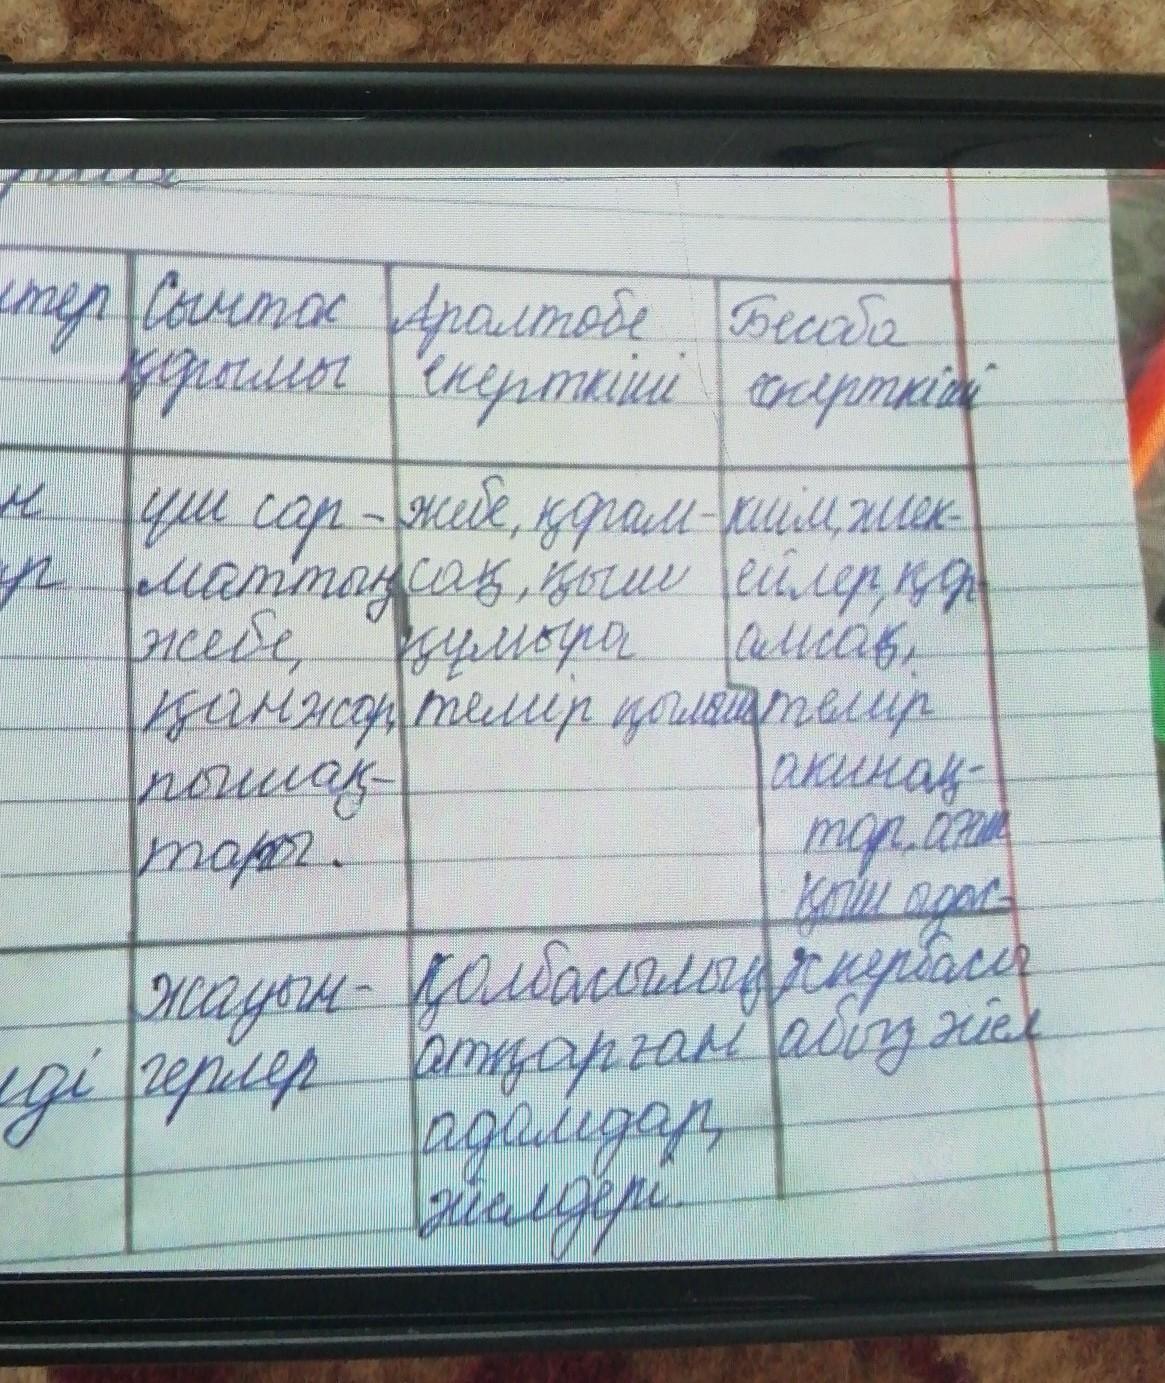 Сынтас
құрымы
Аралтөбе
ескерткіші
Бесоба
ескерткіші
үш сар-
маттың
жебе,
қанжар,
пышақ-
тары.
жебе, қорам-
сақ, қыш
құмыра
темір қылыш
киім, жиек-
ейлер, қор-
амсақ,
темір
ақинақ-
тар.
қыш
жауын-
герлер
қолбасылық
атқарған
адамдар,
әйелдері.
әскербасы
абыз әйел